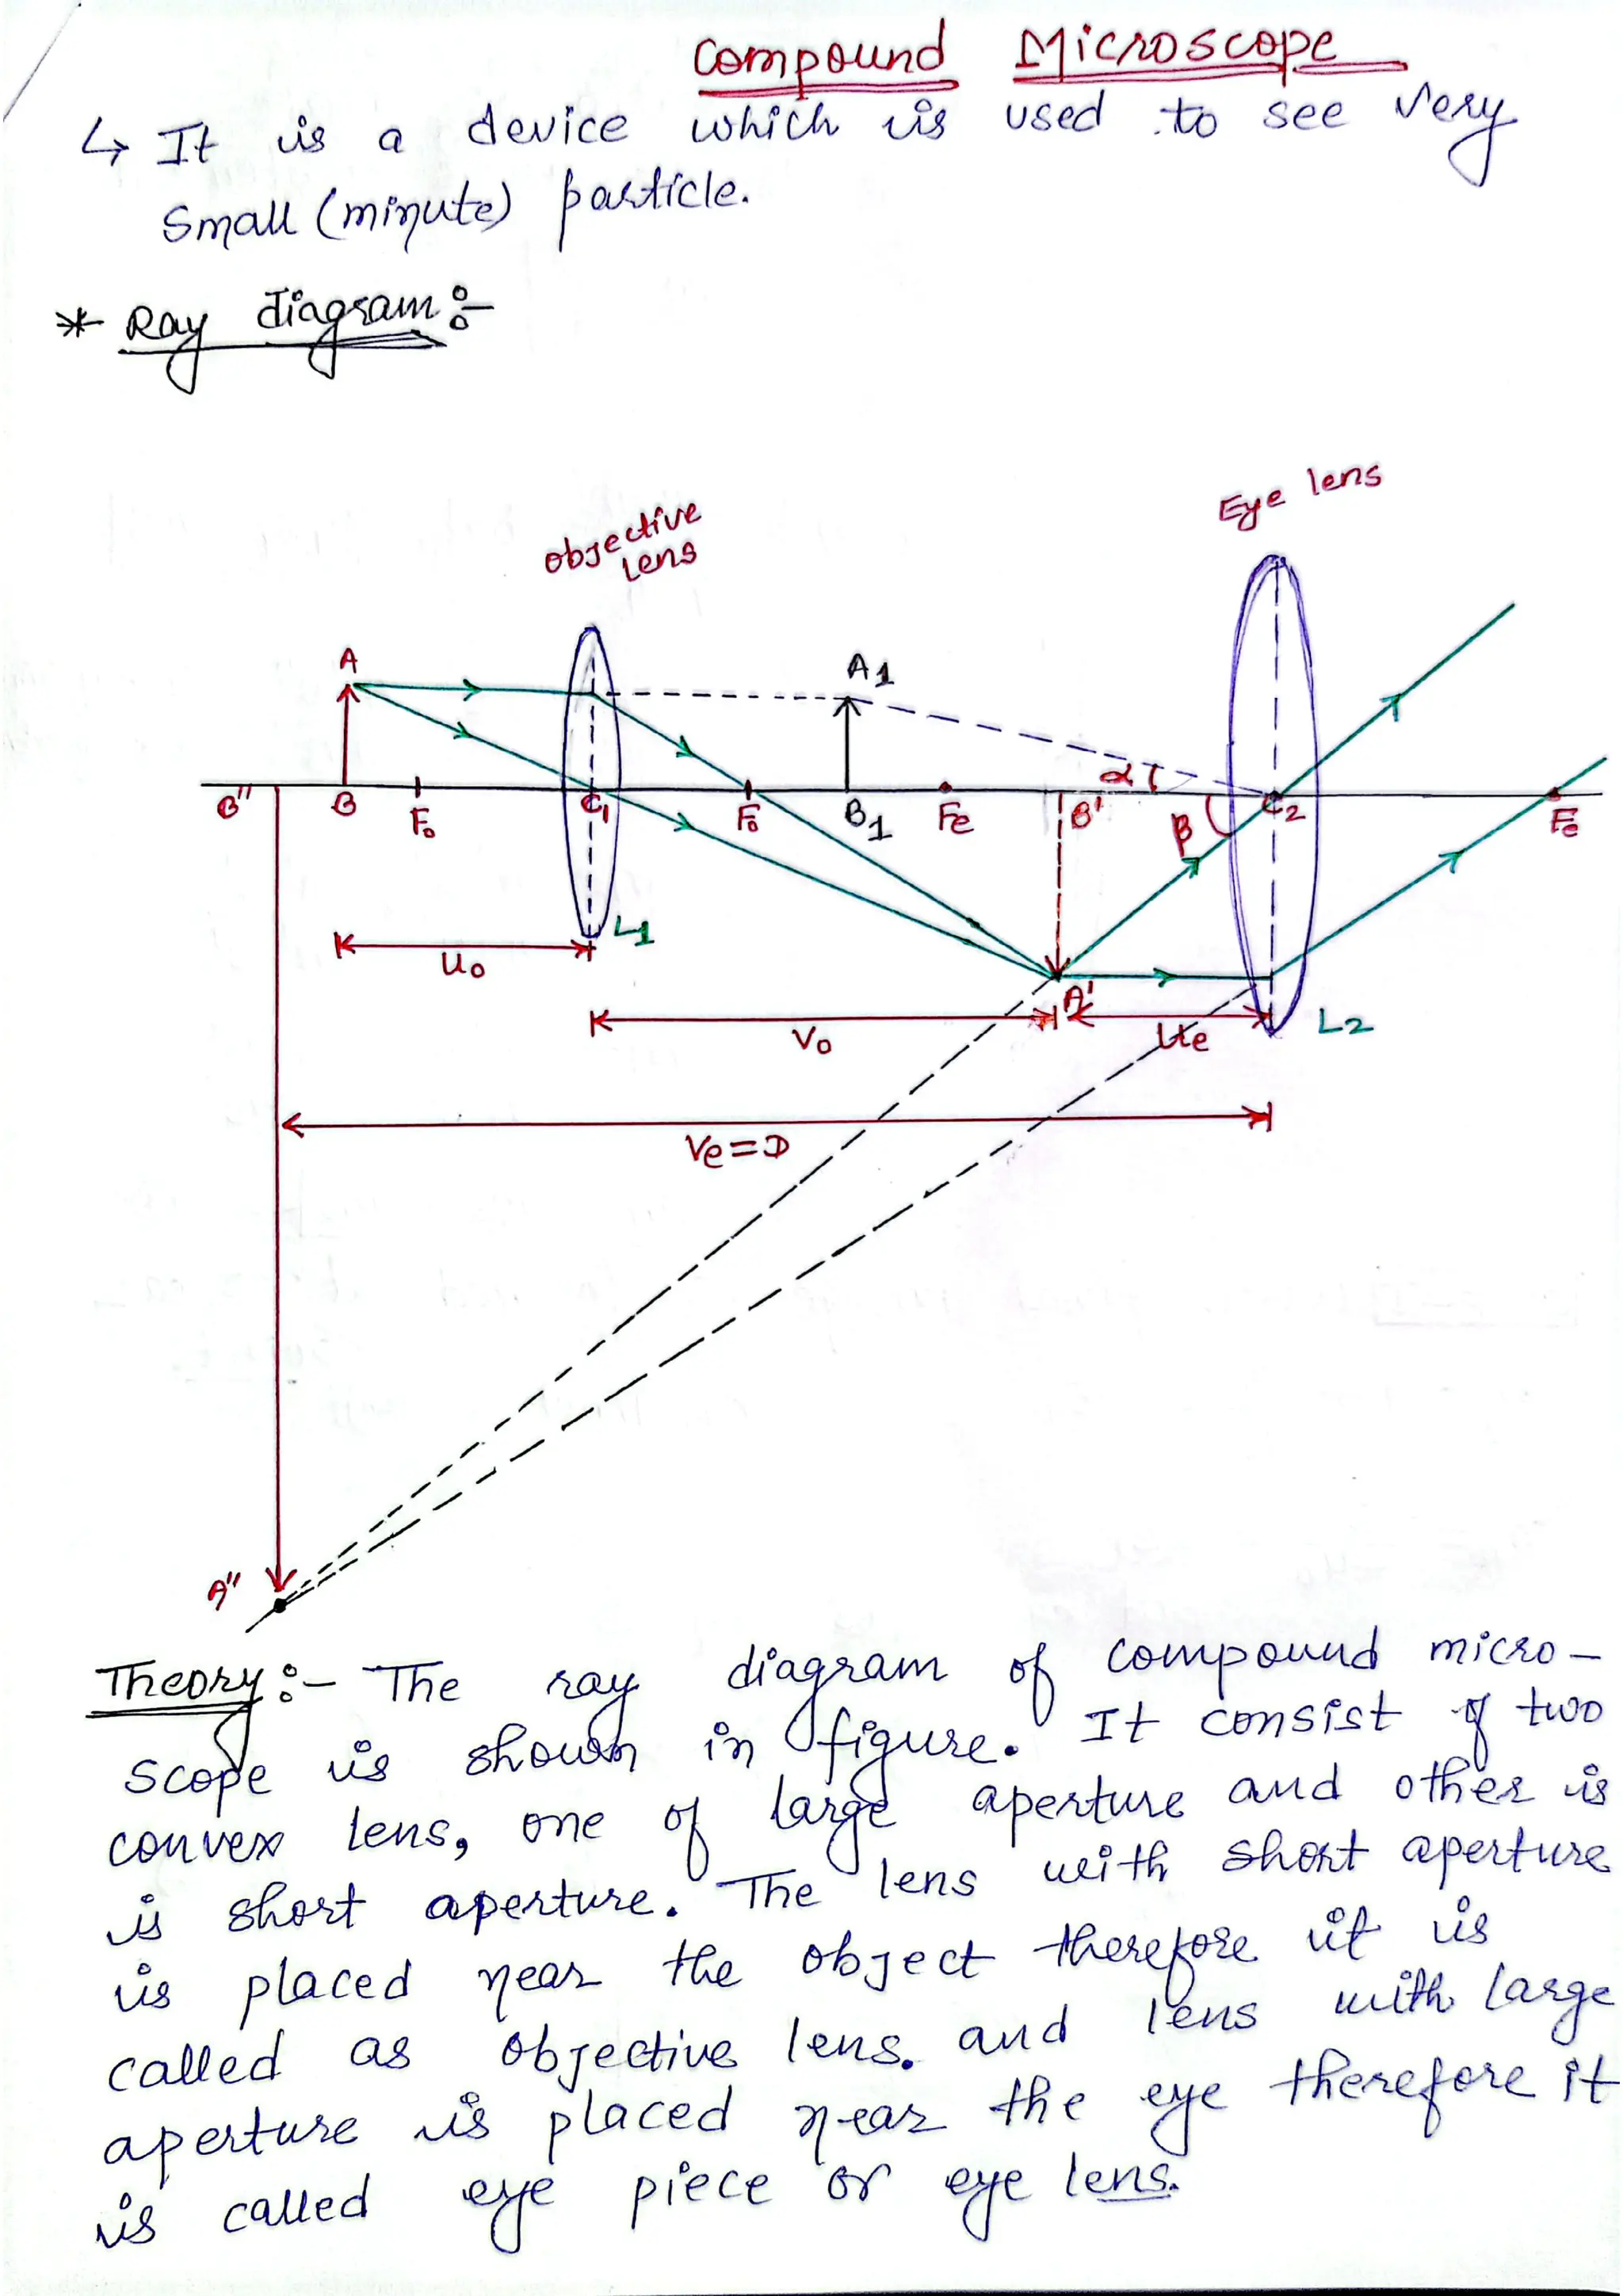 Compound Microscope
↳ It is a device which is used to see very
small (minute) particle.
* Ray diagram :-
Objective
lens
Eye lens
A
A1
α
B"
B
Fo
C1
Fo
B1
Fe
B'
β
C2
Fe
L1
uo
A'
vo
ue
L2
Ve=D
A"
Theory :- The ray diagram of compound micro-
scope is shown in figure. It consist of two
convex lens, one of large aperture and other is
is short aperture. The lens with short aperture
is placed near the object therefore it is
called as objective lens. and lens with large
aperture is placed near the eye therefore it
is called eye piece or eye lens.